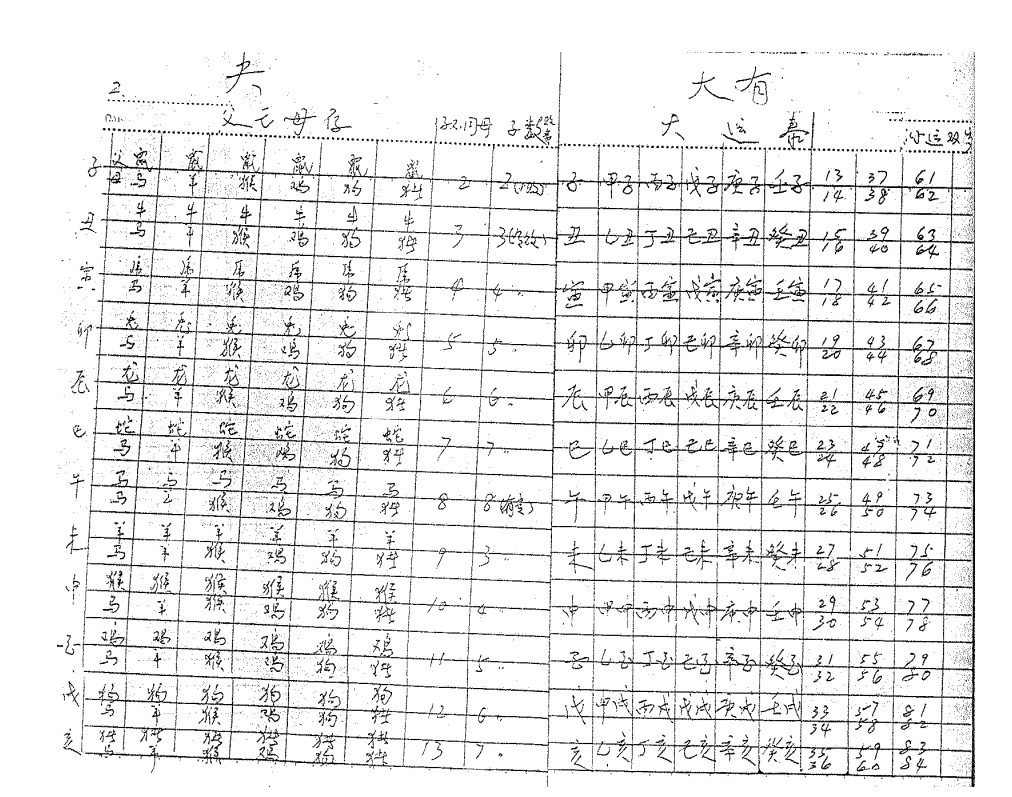 2. 夬 大有
父亡母存 子不同母 子数 大运 小运双
子 父鼠 鼠 鼠 鼠 鼠 鼠 2 2 子 甲子 丙子 戊子 庚子 壬子 13 37 61
母马 羊 猴 鸡 狗 猪 14 38 62
丑 牛 牛 牛 牛 牛 牛 3 3 丑 乙丑 丁丑 己丑 辛丑 癸丑 15 39 63
马 羊 猴 鸡 狗 猪 16 40 64
寅 虎 虎 虎 虎 虎 虎 4 4 寅 甲寅 丙寅 戊寅 庚寅 壬寅 17 41 65
马 羊 猴 鸡 狗 猪 18 42 66
卯 兔 兔 兔 兔 兔 兔 5 5 卯 乙卯 丁卯 己卯 辛卯 癸卯 19 43 67
马 羊 猴 鸡 狗 猪 20 44 68
辰 龙 龙 龙 龙 龙 龙 6 6 辰 甲辰 丙辰 戊辰 庚辰 壬辰 21 45 69
马 羊 猴 鸡 狗 猪 22 46 70
巳 蛇 蛇 蛇 蛇 蛇 蛇 7 7 巳 乙巳 丁巳 己巳 辛巳 癸巳 23 47 71
马 羊 猴 鸡 狗 猪 24 48 72
午 马 马 马 马 马 马 8 8 午 甲午 丙午 戊午 庚午 壬午 25 49 73
马 羊 猴 鸡 狗 猪 26 50 74
未 羊 羊 羊 羊 羊 羊 9 3 未 乙未 丁未 己未 辛未 癸未 27 51 75
马 羊 猴 鸡 狗 猪 28 52 76
申 猴 猴 猴 猴 猴 猴 10 4 申 甲申 丙申 戊申 庚申 壬申 29 53 77
马 羊 猴 鸡 狗 猪 30 54 78
鸡 鸡 鸡 鸡 鸡 鸡 11 5 31 55 79
马 羊 猴 鸡 狗 猪 32 56 80
戌 狗 狗 狗 狗 狗 狗 12 6 戌 甲戌 丙戌 戊戌 庚戌 壬戌 33 57 81
马 羊 猴 鸡 狗 猪 34 58 82
亥 猪 猪 猪 猪 猪 猪 13 7 亥 乙亥 丁亥 己亥 辛亥 癸亥 35 59 83
马 羊 猴 鸡 狗 猪 36 60 84